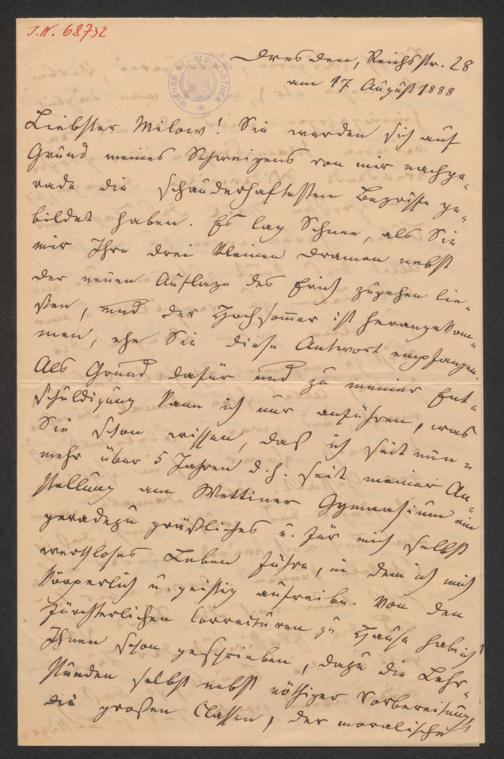 J.N. 68732
Dresden, Reichsstr. 28
am 17 August 1888
Liebster Milow! Sie werden sich auf
Grund meines Schweigens von mir nachge-
rade die schauderhaftesten Begriffe ge-
bildet haben. Es lag Schnee, als Sie
mir Ihre drei kleinen Dramen nebst
der neuen Auflage des Erich zugehen lie-
ßen, und der Hochsommer ist herangekom-
men, ehe Sie diese Antwort empfangen.
Als Grund dafür und zu meiner Ent-
schuldigung kann ich nur anführen, was
Sie schon wissen, daß ich seit nun-
mehr über 5 Jahren d.h. seit meiner An-
stellung am Wettiner Gymnasium ein
geradezu gräßliches u. für mich selbst
werthloses Leben führe, in dem ich mich
körperlich u. geistig aufreibe. Von den
fürchterlichen Correcturen zu Hause hab ich
Ihnen schon geschrieben, dazu die Lehr-
stunden selbst nebst nöthiger Vorbereitung,
die großen Classen, der moralische